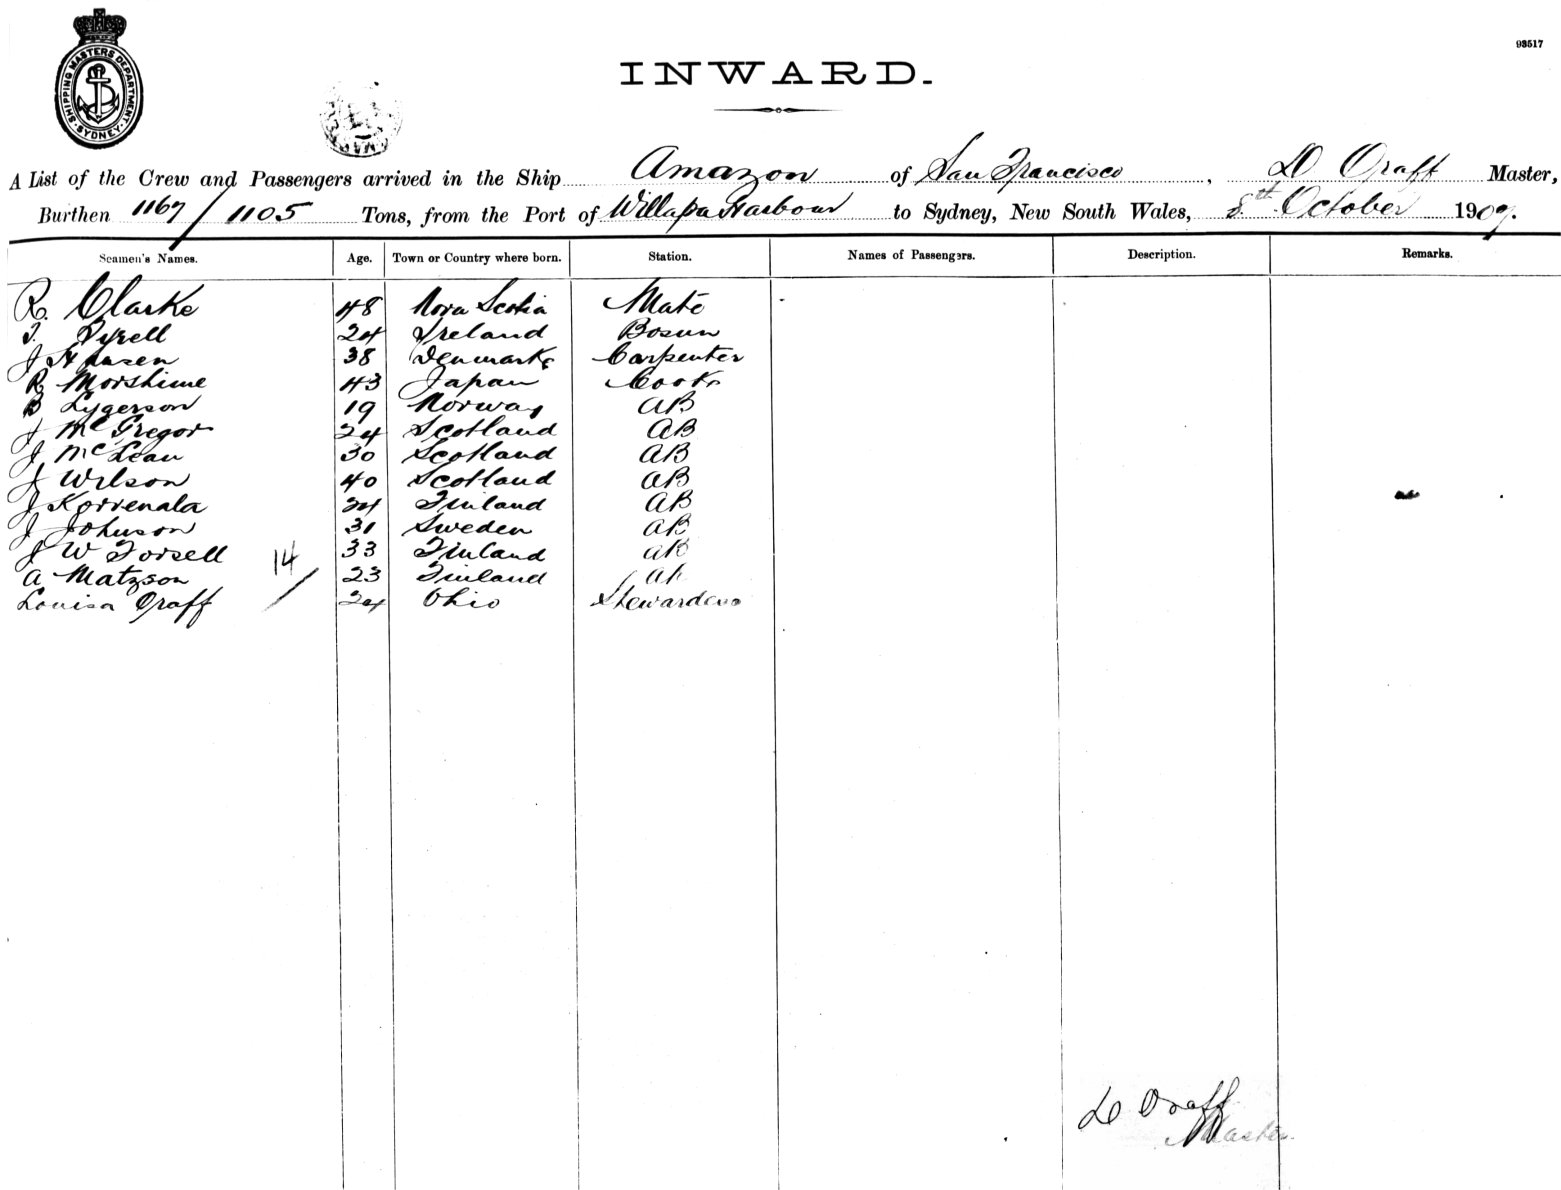 93517
SHIPPING MASTERS DEPARTMENT
SYDNEY
INWARD.
A List of the Crew and Passengers arrived in the Ship Amazon of San Francisco, D Graff Master,
Burthen 1167/1105 Tons, from the Port of Willapa Harbour to Sydney, New South Wales, 8th October 1909.
Seamen's Names. Age. Town or Country where born. Station. Names of Passengers. Description. Remarks.
R. Clarke 48 Nova Scotia Mate
T. Tyrell 24 Ireland Bosun
J Hansen 38 Denmark Carpenter
R Morshime 43 Japan Cook
B Lygerson 19 Norway AB
J McGregor 24 Scotland AB
J McLean 30 Scotland AB
J Wilson 40 Scotland AB
J Korrenala 24 Finland AB
J Johnson 31 Sweden AB
J W Forsell 33 Finland AB
14
A Matzson 23 Finland AB
Louisa Graff 24 Ohio Stewardess
D Graff
Master